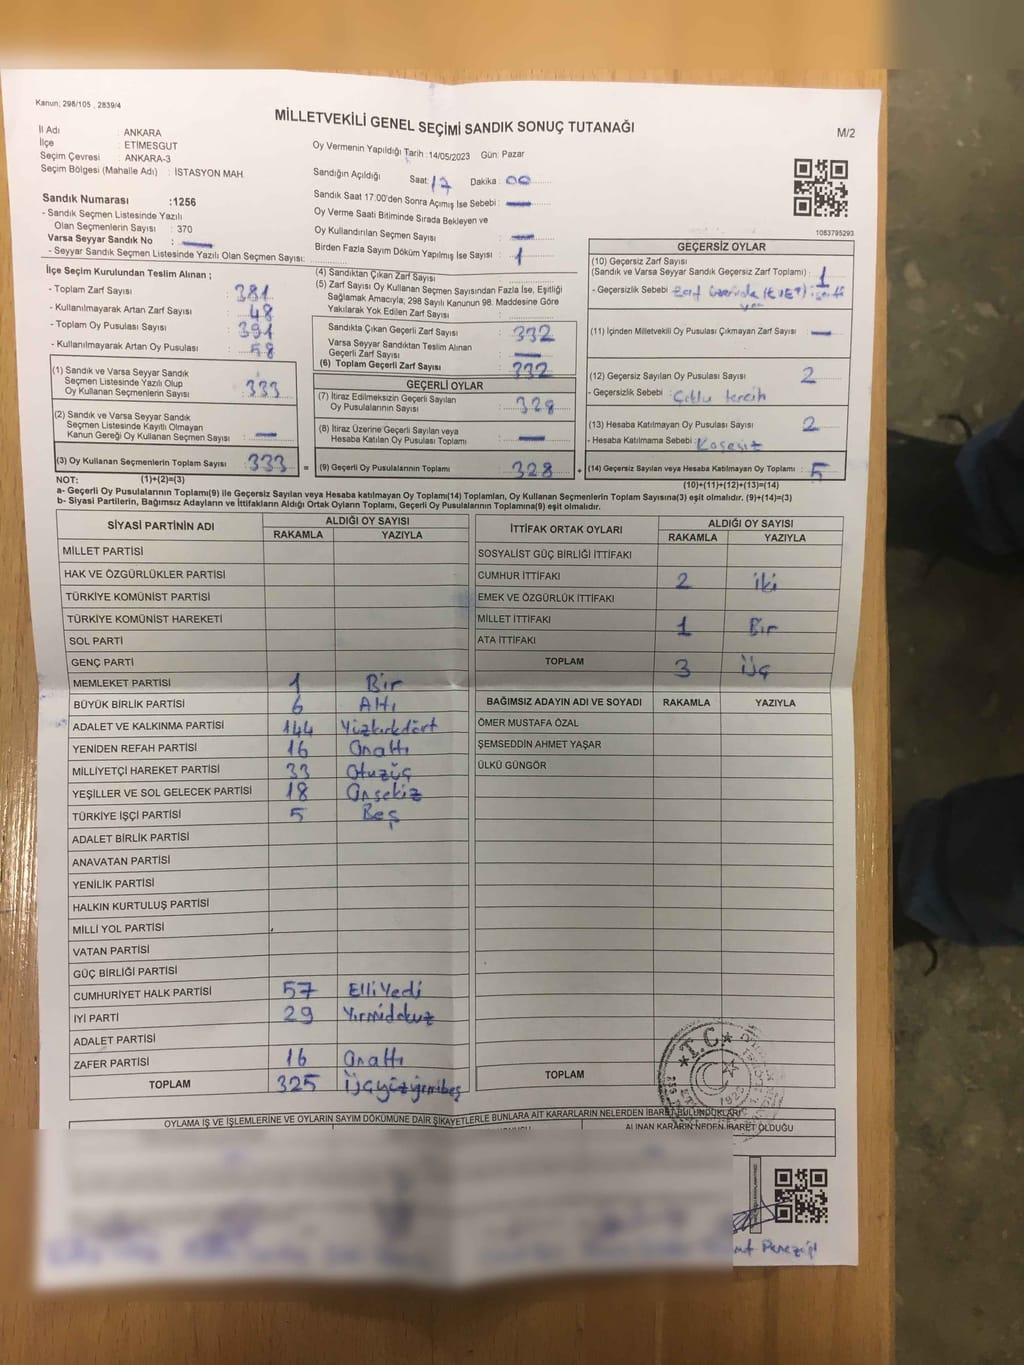 Kanun; 298/105 , 2839/4
MİLLETVEKİLİ GENEL SEÇİMİ SANDIK SONUÇ TUTANAĞI
M/2
İl Adı : ANKARA
İlçe : ETİMESGUT
Seçim Çevresi : ANKARA-3
Seçim Bölgesi (Mahalle Adı) : İSTASYON MAH.
Oy Vermenin Yapıldığı Tarih :14/05/2023 Gün: Pazar
Sandığın Açıldığı Saat: 17 Dakika : 00
Sandık Saat 17:00'den Sonra Açımış İse Sebebi :
Oy Verme Saati Bitiminde Sırada Bekleyen ve
Oy Kullandırılan Seçmen Sayısı :
Birden Fazla Sayım Döküm Yapılmış İse Sayısı : 1
Sandık Numarası :1256
- Sandık Seçmen Listesinde Yazılı
Olan Seçmenlerin Sayısı : 370
Varsa Seyyar Sandık No :
- Seyyar Sandık Seçmen Listesinde Yazılı Olan Seçmen Sayısı:
1083795293
İlçe Seçim Kurulundan Teslim Alınan ;
- Toplam Zarf Sayısı : 381
- Kullanılmayarak Artan Zarf Sayısı : 48
- Toplam Oy Pusulası Sayısı : 391
- Kullanılmayarak Artan Oy Pusulası : 58
(1) Sandık ve Varsa Seyyar Sandık
Seçmen Listesinde Yazılı Olup
Oy Kullanan Seçmenlerin Sayısı : 333
(2) Sandık ve Varsa Seyyar Sandık
Seçmen Listesinde Kayıtlı Olmayan
Kanun Gereği Oy Kullanan Seçmen Sayısı :
(3) Oy Kullanan Seçmenlerin Toplam Sayısı : 333
(4) Sandıktan Çıkan Zarf Sayısı
(5) Zarf Sayısı Oy Kullanan Seçmen Sayısından Fazla İse, Eşitliği
Sağlamak Amacıyla; 298 Sayılı Kanunun 98. Maddesine Göre
Yakılarak Yok Edilen Zarf Sayısı
Sandıkta Çıkan Geçerli Zarf Sayısı : 332
Varsa Seyyar Sandıktan Teslim Alınan
Geçerli Zarf Sayısı :
(6) Toplam Geçerli Zarf Sayısı : 332
GEÇERLİ OYLAR
(7) İtiraz Edilmeksizin Geçerli Sayılan
Oy Pusulalarının Sayısı : 328
(8) İtiraz Üzerine Geçerli Sayılan veya
Hesaba Katılan Oy Pusulası Toplamı :
= (9) Geçerli Oy Pusulalarının Toplamı : 328
GEÇERSİZ OYLAR
(10) Geçersiz Zarf Sayısı
(Sandık ve Varsa Seyyar Sandık Geçersiz Zarf Toplamı) : 1
- Geçersizlik Sebebi : Zarf üzerinda (EVET)
(11) İçinden Milletvekili Oy Pusulası Çıkmayan Zarf Sayısı :
(12) Geçersiz Sayılan Oy Pusulası Sayısı : 2
- Geçersizlik Sebebi : Çoklu tercih
(13) Hesaba Katılmayan Oy Pusulası Sayısı : 2
- Hesaba Katılmama Sebebi : Kaşesiz
+ (14) Geçersiz Sayılan veya Hesaba Katılmayan Oy Toplamı : 5
NOT: (1)+(2)=(3)
(10)+(11)+(12)+(13)=(14)
a- Geçerli Oy Pusulalarının Toplamı(9) ile Geçersiz Sayılan veya Hesaba katılmayan Oy Toplamı(14) Toplamları, Oy Kullanan Seçmenlerin Toplam Sayısına(3) eşit olmalıdır. (9)+(14)=(3)
b- Siyasi Partilerin, Bağımsız Adayların ve İttifakların Aldığı Ortak Oyların Toplamı, Geçerli Oy Pusulalarının Toplamına(9) eşit olmalıdır.
SİYASİ PARTİNİN ADI ALDIĞI OY SAYISI
RAKAMLA YAZIYLA
MİLLET PARTİSİ
HAK VE ÖZGÜRLÜKLER PARTİSİ
TÜRKİYE KOMÜNİST PARTİSİ
TÜRKİYE KOMÜNİST HAREKETİ
SOL PARTİ
GENÇ PARTİ
MEMLEKET PARTİSİ 1 Bir
BÜYÜK BİRLİK PARTİSİ 6 Altı
ADALET VE KALKINMA PARTİSİ 144 Yüzkırkdört
YENİDEN REFAH PARTİSİ 16 Onaltı
MİLLİYETÇİ HAREKET PARTİSİ 33 Otuzüç
YEŞİLLER VE SOL GELECEK PARTİSİ 18 Onsekiz
TÜRKİYE İŞÇİ PARTİSİ 5 Beş
ADALET BİRLİK PARTİSİ
ANAVATAN PARTİSİ
YENİLİK PARTİSİ
HALKIN KURTULUŞ PARTİSİ
MİLLİ YOL PARTİSİ
VATAN PARTİSİ
GÜÇ BİRLİĞİ PARTİSİ
CUMHURİYET HALK PARTİSİ 57 Elli Yedi
İYİ PARTİ 29 Yırmidokuz
ADALET PARTİSİ
ZAFER PARTİSİ 16 Onaltı
TOPLAM 325 Üçyüzyirmibeş
İTTİFAK ORTAK OYLARI ALDIĞI OY SAYISI
RAKAMLA YAZIYLA
SOSYALİST GÜÇ BİRLİĞİ İTTİFAKI
CUMHUR İTTİFAKI 2 iki
EMEK VE ÖZGÜRLÜK İTTİFAKI
MİLLET İTTİFAKI 1 Bir
ATA İTTİFAKI
TOPLAM 3 Üç
BAĞIMSIZ ADAYIN ADI VE SOYADI RAKAMLA YAZIYLA
ÖMER MUSTAFA ÖZAL
ŞEMSEDDİN AHMET YAŞAR
ÜLKÜ GÜNGÖR
TOPLAM
T.C.
OYLAMA İŞ VE İŞLEMLERİNE VE OYLARIN SAYIM DÖKÜMÜNE DAİR ŞİKAYETLERLE BUNLARA AİT KARARLARIN NELERDEN İBARET BULUNDUKLARI
ALINAN KARARIN NEDEN İBARET OLDUĞU